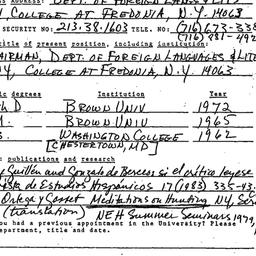 ss ADDRESS: DEPT. OF FOREIGN LANGS & LIT
COLLEGE AT FREDONIA, N.Y. 14063
SECURITY NO: 213.38.1603 TELE. NO: (716) 673-338
(716) 881-492
title of present position, including institution:
AIRMAN, DEPT. OF FOREIGN LANGUAGES & LITE
NY, COLLEGE AT FREDONIA, N.Y. 14063
ic degrees Institution Year
h D BROWN UNIV 1972
M. BROWN UNIV 1965
WASHINGTON COLLEGE 1962
[CHESTERTOWN, MD]
publications and research
Guillén and Gonzalo de Berceo: si el crítico leyese
de Estudios Hispánicos 17 (1983) 335-43.
Ortega y Gasset Meditations on Hunting NY, Scr
(translation) NEH Summer Seminars 1979,
ou had a previous appointment in the University? Please
department, title and date.